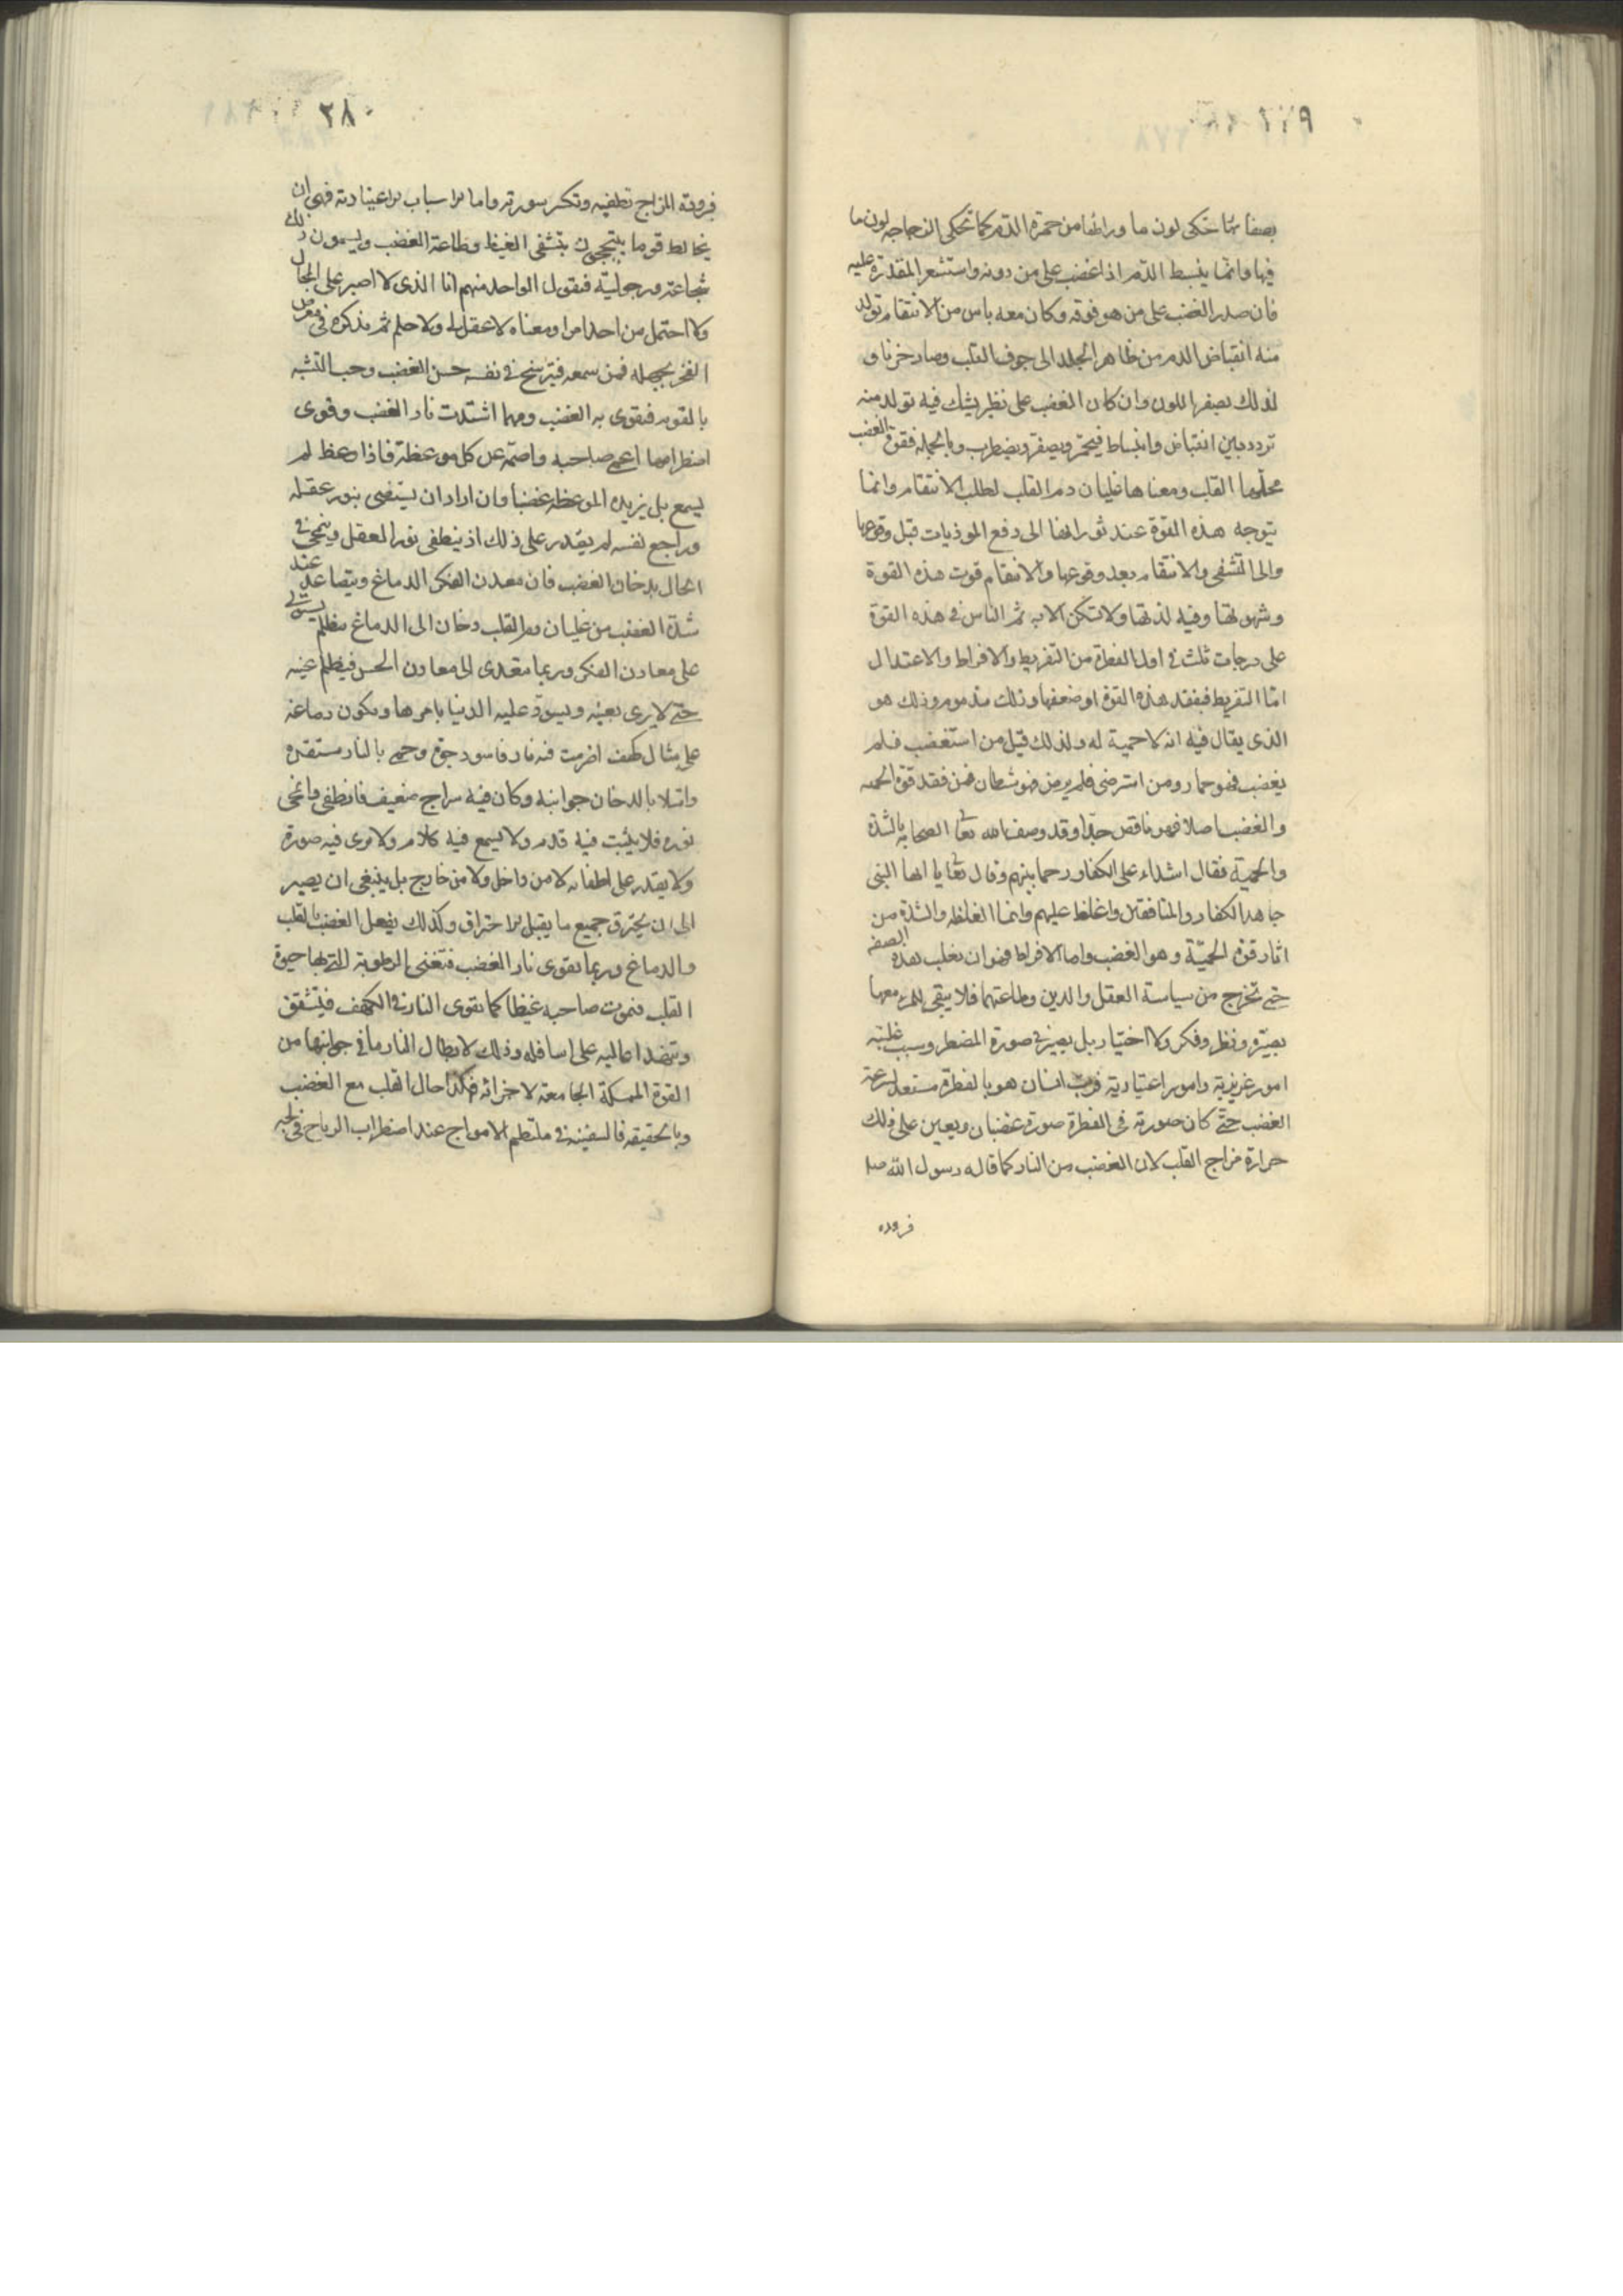 ٢٧٩
بصفائها تحكى لون ما ورائها من حمرة الدّم كما تحكى الزجاجه لون ما
فيها وانّما ينبسط الدّم اذا غضب على من دونه واستشعر المقدرة عليه
فان صدر الغضب على من هو فوقه وكان معه ياس من الانتقام تولد
منه انقباض الدم من ظاهر الجلد الى جوف القلب وصار حزنا و
لذلك يصفر اللون وان كان الغضب على نظير يشك فيه تولد منه
تردد بين انقباض وانبساط فيحمّر ويصفر ويضطرب وبالجمله فقوة الغضب
محلّها القلب ومعناها غليان دم القلب لطلب الانتقام وانّما
يتوجه هذه القوة عند ثورانها الى دفع الموذيات قبل وقوعها
والى التشفى والانتقام بعد وقوعها والانتقام قوت هذه القوة
وشهوتها وفيه لذتها ولا تسكن الا به ثم الناس فى هذه القوة
على درجات ثلث فى اول الفطرة من التفريط والافراط والاعتدال
امّا التفريط فبفقد هذه القوة او ضعفها وذلك مذموم وذلك هو
الذى يقال فيه انه لا حمية له ولذلك قيل من استغضب فلم
يغضب فهو حمار ومن استرضى فلم يرض فهو شيطان فمن فقد قوة الحميه
والغضب اصلا فهو ناقص جدّا وقد وصف الله تعالى الصحابه بالشدّة
والحمية فقال اشداء على الكفار رحما بينهم وقال تعالى يا ايها النبى
جاهد الكفار والمنافقين واغلظ عليهم وانما الغلظه والشدّة من
اثار قوة الحميّة وهو الغضب واما الافراط فهو ان يغلب هذه الصفه
حتى تخرج من سياسة العقل والدين وطاعتهما فلا يبقى للمرء معها
بصيرة ونظر وفكر ولا اختيار بل يصير فى صورة المضطر وسبب غلبته
امور غريزية وامور اعتيادية فربّ انسان هو بالفطرة مستعد لسرعة
الغضب حتّى كان صورته فى الفطرة صورة غضبان ويعين على ذلك
حرارة مزاج القلب لان الغضب من النار كما قاله رسول الله صلا
فروده
٢٨٠
فبرودة المزاج تطفيه وتكسر سورته واما الاسباب الاعتيادية فهى ان
يخالط قوما يتبجحون بتشفى الغيظ وطاعة الغضب ويسمون ذلك
شجاعة ورجولية فيقول الواحد منهم انا الذى لا اصبر على المحال
ولا احتمل من احد امرا ومعناه لا عقل لى ولا حلم ثم يذكره فى معرض
الفخر بجهله فمن سمعه فيترسخ فى نفسه حسن الغضب وحب التشبه
بالقوم فيقوى به الغضب ومهما اشتدت نار الغضب وقوى
اضطرامها اعمى صاحبه واصمّه عن كل موعظة فاذا وعظ لم
يسمع بل يزيده الموعظه غضبا وان اراد ان يستضى بنور عقله
وراجع نفسه لم يقدر على ذلك اذ ينطفى نور العقل وينمحى فى
الحال بدخان الغضب فان معدن الفكر الدماغ ويتصاعد عند
شدة الغضب من غليان دم القلب دخان الى الدماغ مظلم يستولى
على معادن الفكر وربما يتعدى الى معادن الحس فيظلم عينه
حتى لا يرى بعينه ويسودّ عليه الدنيا باسرها ويكون دماغه
على مثال كهف اضرمت فيه نار فاسود جوّه وحمى بالنار مستقره
وامتلا بالدخان جوانبه وكان فيه سراج ضعيف فانطفى وانمحى
نوره فلا يثبت فيه قدم ولا يسمع فيه كلام ولا يرى فيه صورة
ولا يقدر على اطفائه لا من داخل ولا من خارج بل ينبغى ان يصير
الى ان يحترق جميع ما يقبل الاحتراق وكذلك يفعل الغضب بالقلب
والدماغ وربما يقوى نار الغضب فتفنى الرطوبة التى بها حيوة
القلب فيموت صاحبه غيظا كما يقوى النار فى الكهف فيتشقق
وينهد اعاليه على اسافله وذلك لابطال النار ما فى جوانبها من
القوة الممسكة الجامعة لاجزائه فهكذا حال القلب مع الغضب
وبالحقيقه فالسفينه فى ملتطم الامواج عند اضطراب الرياح فى لجه